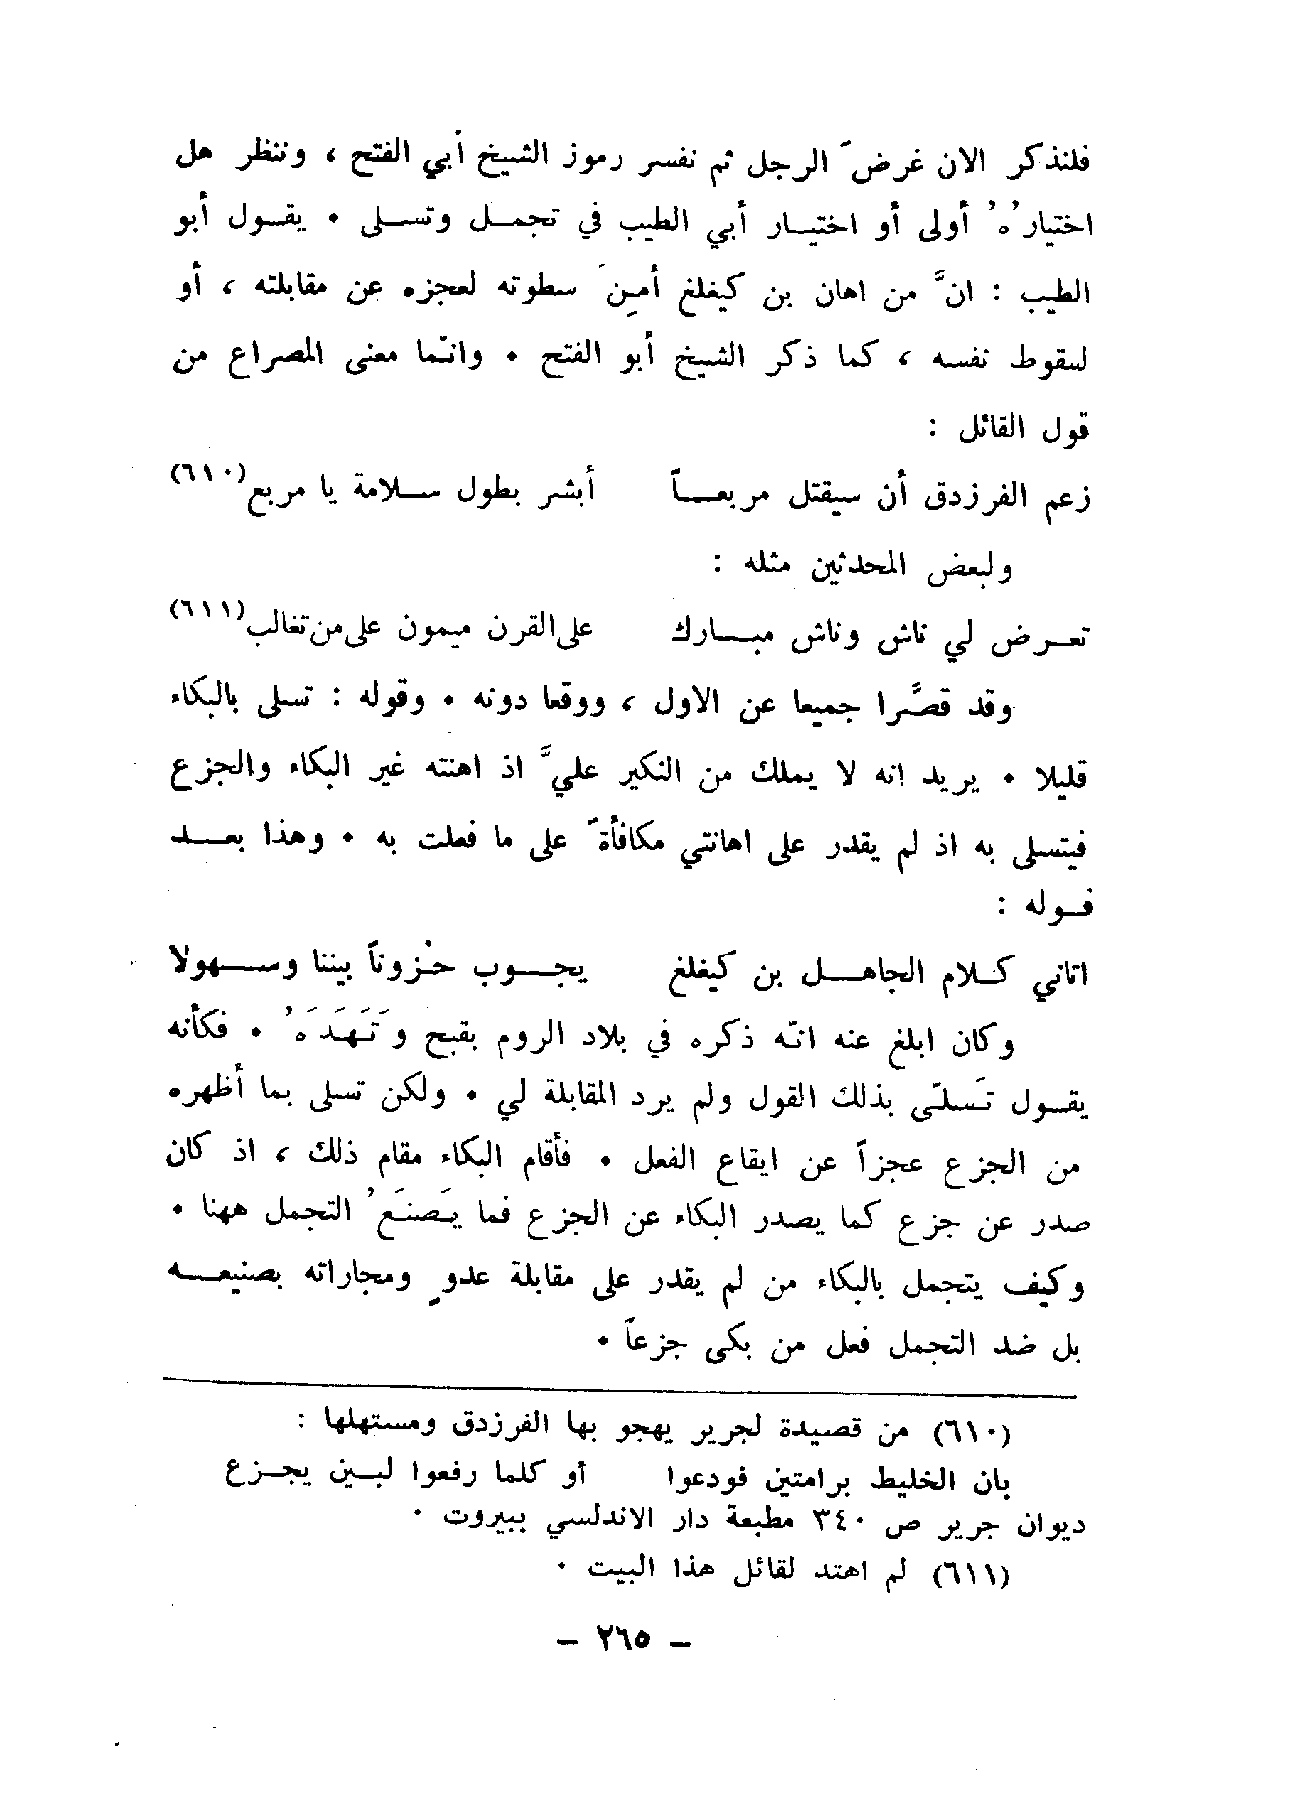 فلنذكر الان غرضَ الرجل ثم نفسر رموز الشيخ أبي الفتح ، وننظر هل
اختيارُهُ أولى أو اختيـار أبي الطيب في تجمـل وتسـلى ٠ يقـول أبو
الطيب : انَّ من اهان بن كيغلغ أمِنَ سطوته لعجزه عن مقابلته ، أو
لسقوط نفسه ، كما ذكر الشيخ أبو الفتح ٠ وانّما معنى المصراع من
قول القائل :
زعم الفرزدق أن سيقتل مربعـاً أبشر بطول سـلامة يا مربع(٦١٠)
ولبعض المحدثين مثله :
تعـرض لي ناش وناش مبـارك على القرن ميمون على من تغالب(٦١١)
وقد قصَّرا جميعا عن الاول ، ووقعا دونه ٠ وقوله : تسلى بالبكاء
قليلا ٠ يريد انه لا يملك من النكير عليَّ اذ اهنته غير البكاء والجزع
فيتسلى به اذ لم يقدر على اهانتي مكافأةً على ما فعلت به ٠ وهذا بعـد
قـوله :
اتاني كـلام الجاهـل بن كيغلغ يجـوب حُزوناً بيننا وسـهولا
وكان ابلغ عنه انّه ذكره في بلاد الروم بقبح وَتَهَدَدَهُ ٠ فكأنه
يقـول تَسَلّى بذلك القول ولم يرد المقابلة لي ٠ ولكن تسلى بما أظهره
من الجزع عجزاً عن ايقاع الفعل ٠ فأقام البكاء مقام ذلك ، اذ كان
صدر عن جزع كما يصدر البكاء عن الجزع فما يَصنَعُ التجمل ههنا ٠
وكيف يتجمل بالبكاء من لم يقدر على مقابلة عدوٍ ومجاراته بصنيعـه
بل ضد التجمل فعل من بكى جزعاً ٠
(٦١٠) من قصيدة لجرير يهجو بها الفرزدق ومستهلها :
بان الخليط برامتين فودعوا أو كلما رفعوا لبـين يجـزع
ديوان جرير ص ٣٤٠ مطبعة دار الاندلسي ببيروت ٠
(٦١١) لم اهتد لقائل هذا البيت ٠
– ٢٦٥ –